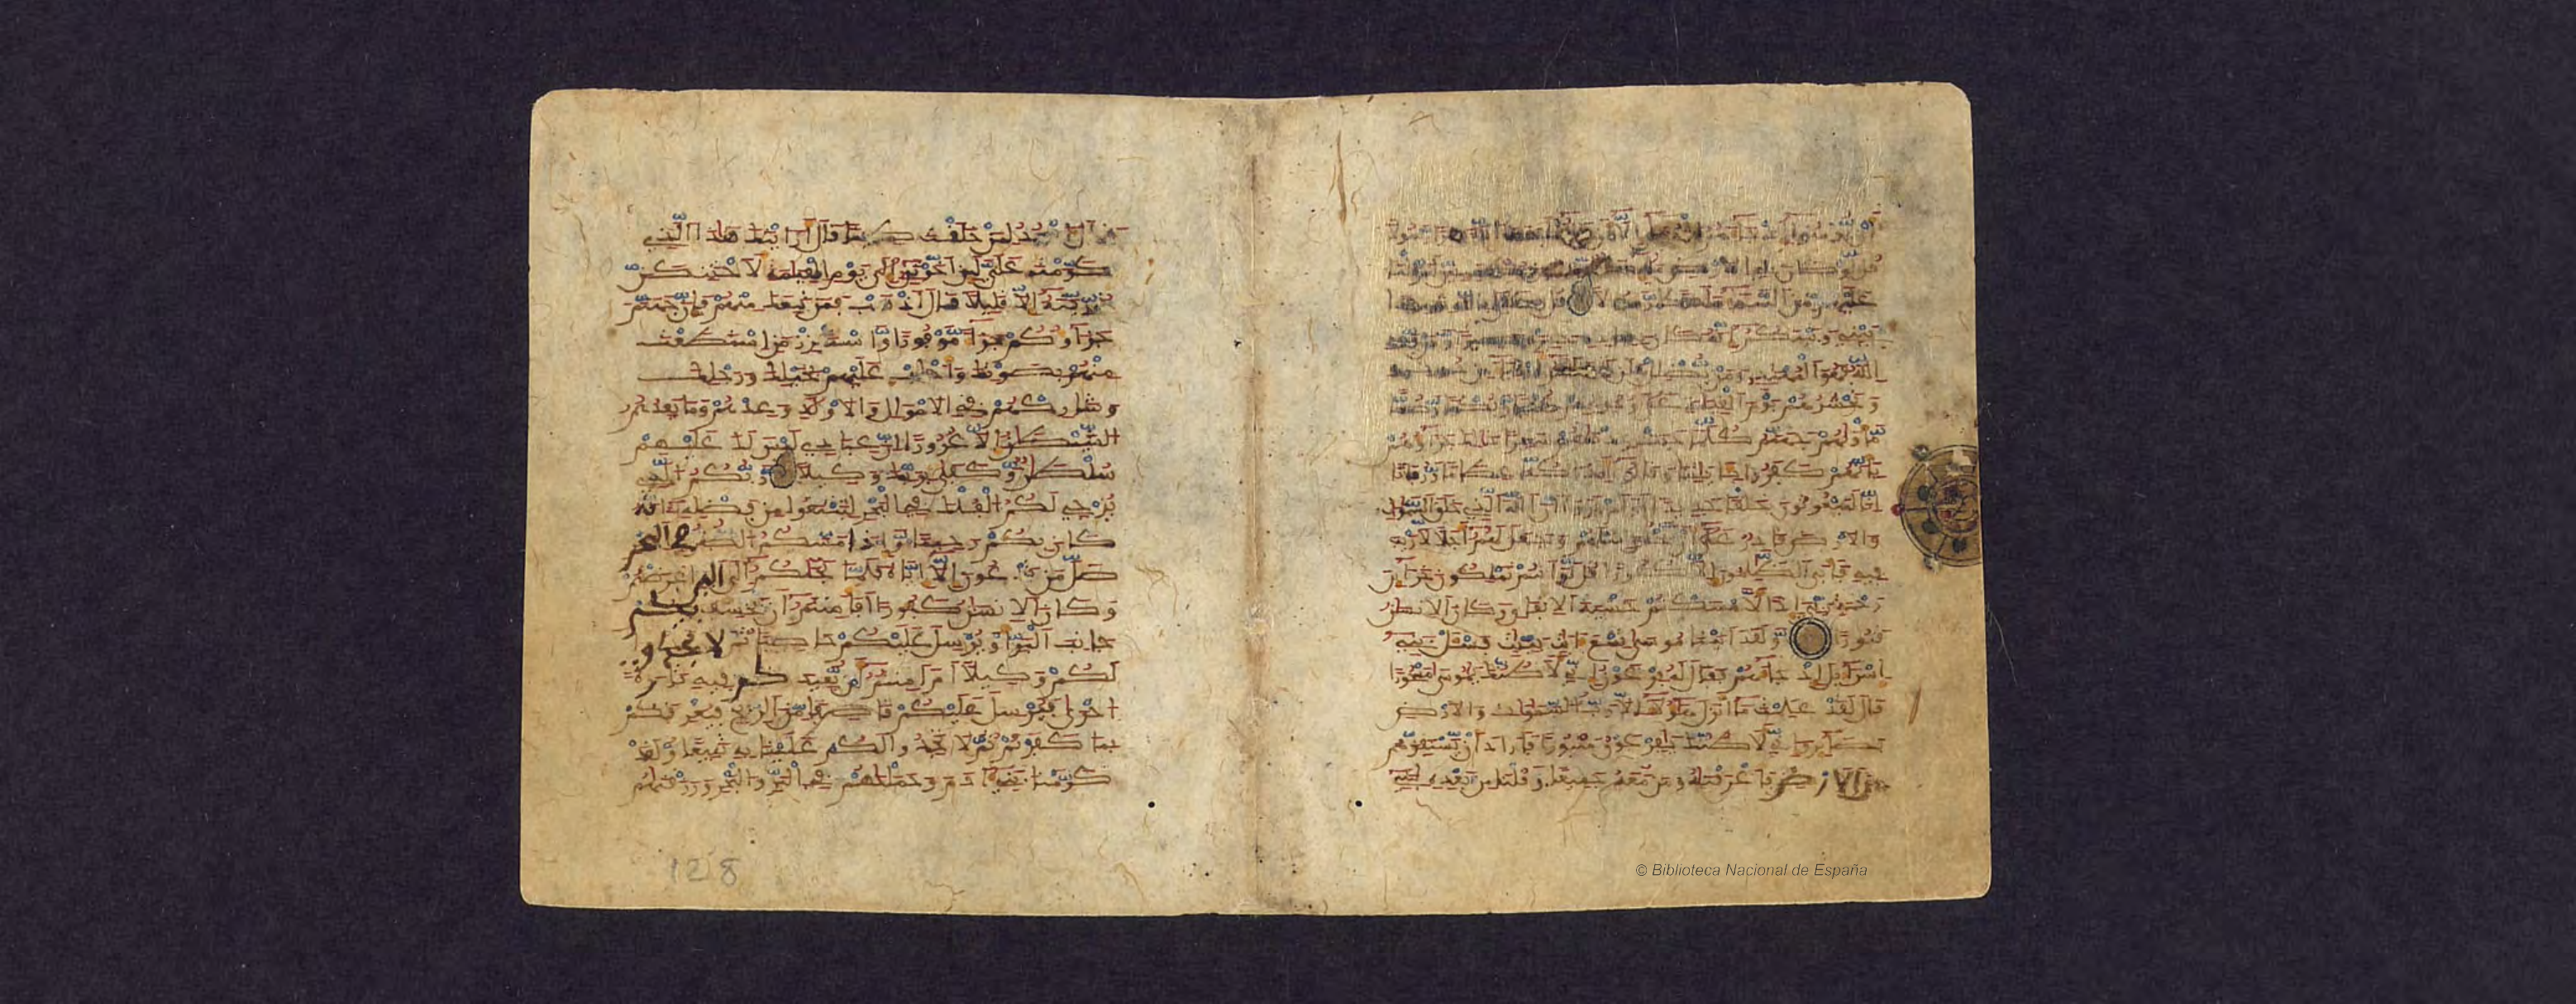 أن يومنوا إذ جاهم الهدى إلا أن قالوا أبعث الله بشرا رسولا
قل لو كان في الأرض ملئكة يمشون مطمئنين لنزلنا
عليهم من السماء ملكا رسولا قل كفى بالله شهيدا
بيني وبينكم إنه كان بعباده خبيرا بصيرا ومن يهد
الله فهو المهتد ومن يضلل فلن تجد لهم أولياء من دونه
ونحشرهم يوم القيمة على وجوههم عميا وبكما وصما
مأويهم جهنم كلما خبت زدنهم سعيرا ذلك جزاؤهم
بأنهم كفروا بايتنا وقالوا أإذا كنا عظما ورفتا
إنا لمبعوثون خلقا جديدا أولم يروا أن الله الذي خلق السموت
والأرض قادر على أن يخلق مثلهم وجعل لهم أجلا لا ريب
فيه فأبى الظلمون إلا كفورا قل لو أنتم تملكون خزائن
رحمة ربي إذا لأمسكتم خشية الإنفاق وكان الإنسن
قتورا ولقد اتينا موسى تسع ايت بينت فسئل بني
إسرائل إذ جاهم فقال له فرعون إني لأظنك يموسى مسحورا
قال لقد علمت ما أنزل هؤلاء إلا رب السموت والأرض
بصائر وإني لأظنك يفرعون مثبورا فأراد أن يستفزهم
من الأرض فأغرقنه ومن معه جميعا وقلنا من بعده لبني
قال أأسجد لمن خلقت طينا قال أرايتك هذا الذي
كرمت علي لئن أخرتن إلى يوم القيمة لأحتنكن
ذريته إلا قليلا قال اذهب فمن تبعك منهم فإن جهنم
جزاؤكم جزاء موفورا واستفزز من استطعت
منهم بصوتك وأجلب عليهم بخيلك ورجلك
وشاركهم في الأمول والأولد وعدهم وما يعدهم
الشيطن إلا غرورا إن عبادي ليس لك عليهم
سلطن وكفى بربك وكيلا ربكم الذي
يزجي لكم الفلك في البحر لتبتغوا من فضله إنه
كان بكم رحيما وإذا مسكم الضر في البحر
ضل من تدعون إلا إياه فلما نجيكم إلى البر أعرضتم
وكان الإنسن كفورا أفأمنتم أن يخسف بكم
جانب البر أو يرسل عليكم حاصبا ثم لا تجدوا
لكم وكيلا أم أمنتم أن يعيدكم فيه تارة
أخرى فيرسل عليكم قاصفا من الريح فيغرقكم
بما كفرتم ثم لا تجدوا لكم علينا به تبيعا ولقد
كرمنا بني ادم وحملنهم في البر والبحر ورزقنهم
128
© Biblioteca Nacional de España